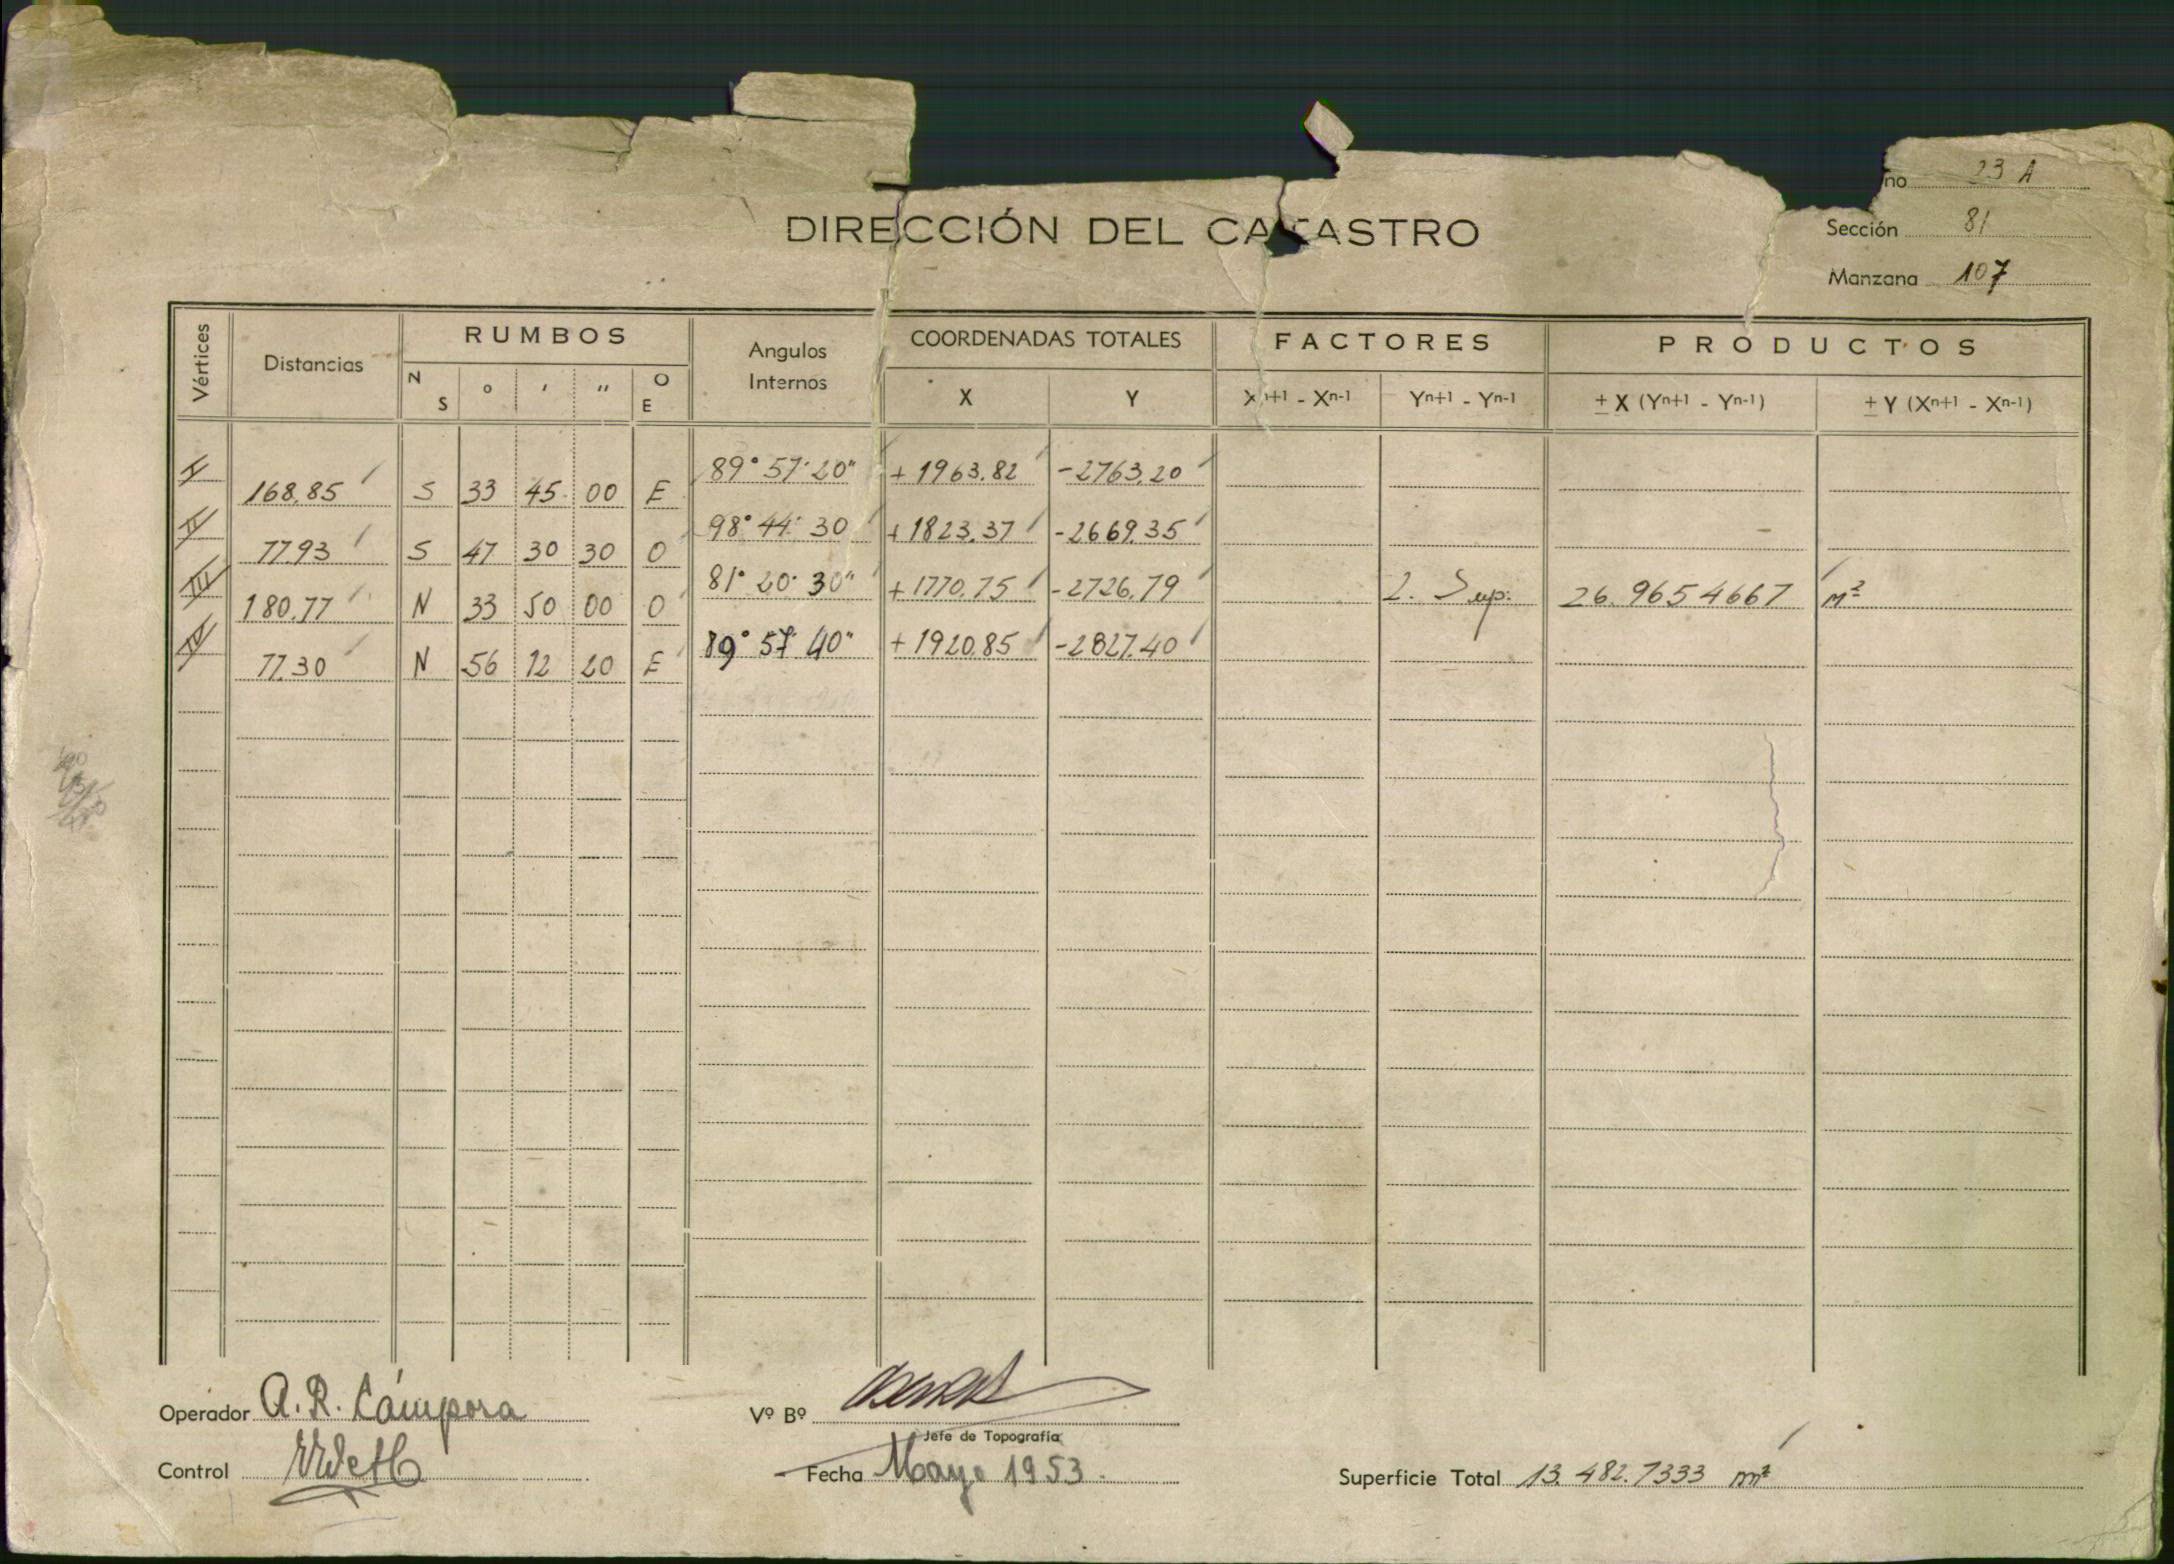 no 23 A
DIRECCIÓN DEL CATASTRO
Sección 81
Manzana 107
Vértices Distancias RUMBOS Angulos Internos COORDENADAS TOTALES FACTORES PRODUCTOS
N S ° ' " O E X Y Xn+1 - Xn-1 Yn+1 - Yn-1 ± X (Yn+1 - Yn-1) ± Y (Xn+1 - Xn-1)
I 89° 57' 20" +1963.82 -2763.20
168.85 S 33 45 00 E
II 98° 44' 30 +1823.37 -2669.35
77.93 S 47 30 30 O
III 81° 20' 30" +1770.75 -2726.79 2. Sup. 26.965 4667 m²
180.77 N 33 50 00 O
IV 89° 57' 40" +1920.85 -2827.40
77.30 N 56 12 20 E
Operador A. R. Cámpora
Vº Bº
Jefe de Topografía
Control
Fecha Mayo 1953.
Superficie Total 13.482.7333 m²